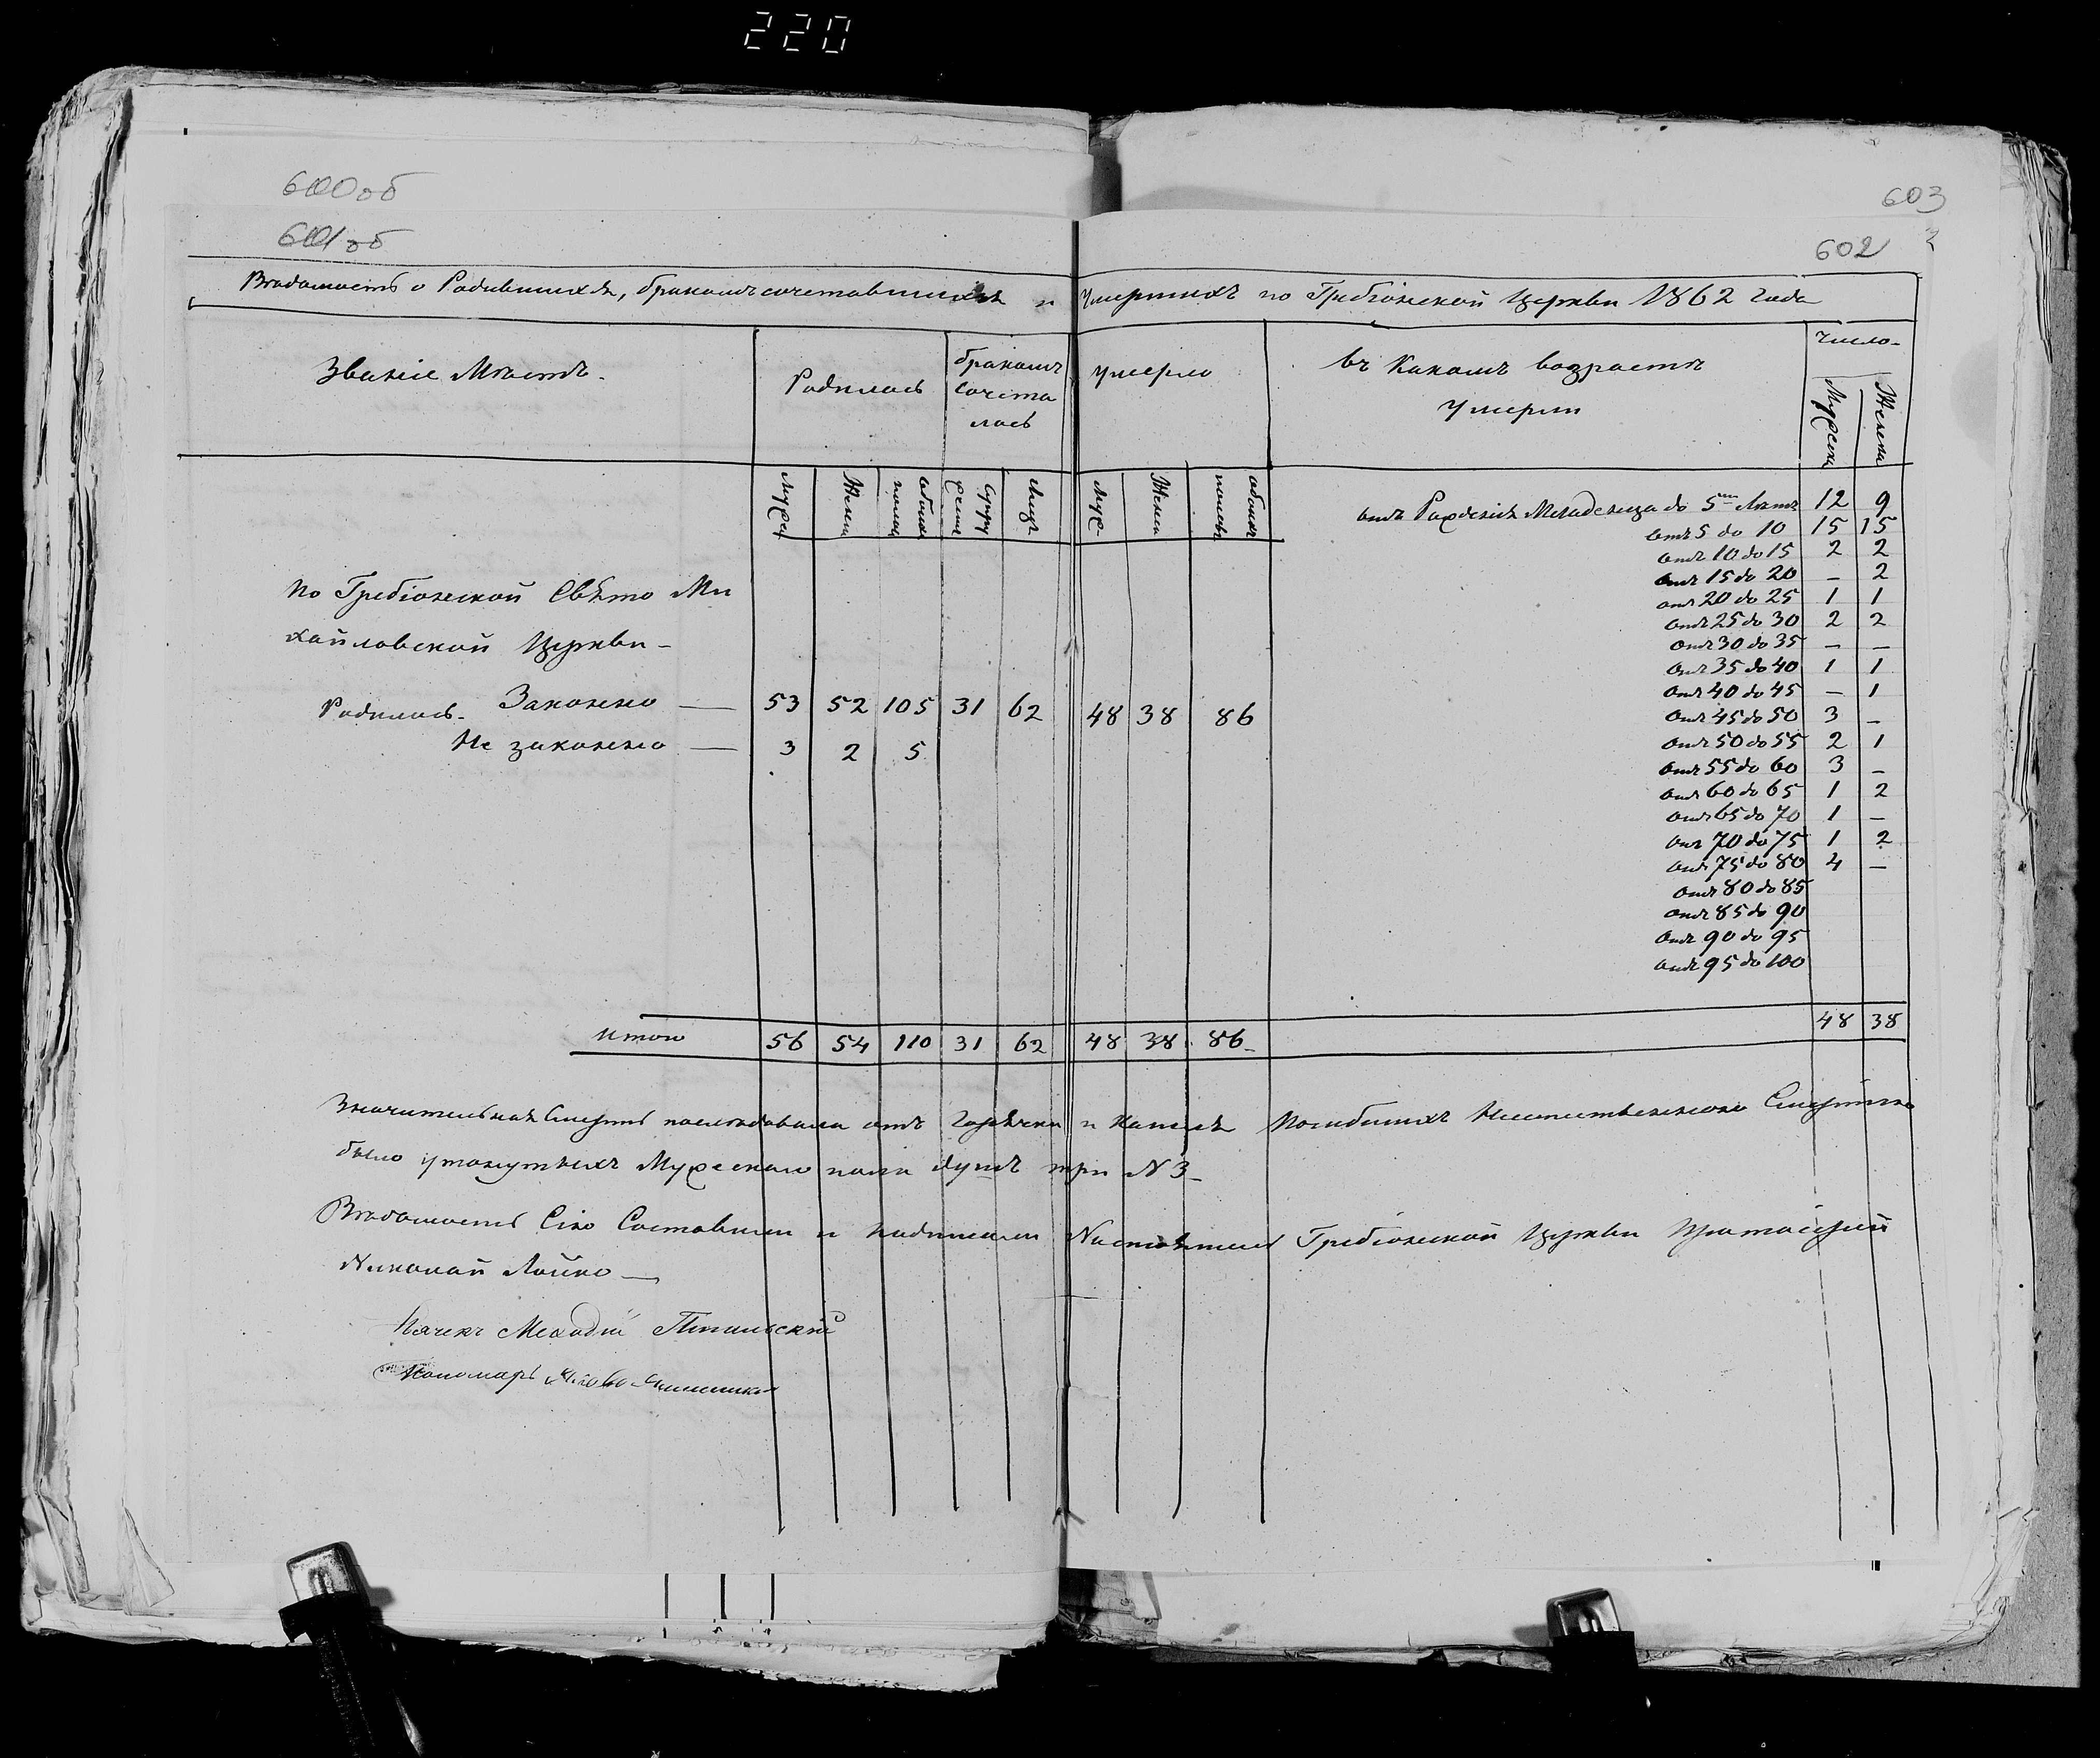 220
600об
601об
603
602
Вѣдомость о Родившихся, бракомъ сочетавшихся и Умершихъ по Гребіонской Церкви 1862 года
Званіе Мѣстъ.
Родилось
бракомъ
сочета
лось
Умерло
Въ Какомъ возрастѣ
Умерли
Число
Мужеска
Женска
Муже
Женск
обоихъ
полов
супру
жеств
Лицъ
Муж
Женск
обоихъ
половъ
По Гребіонской Свѣто Ми
хайловской Церкви
Родилось. Законно — 53 52 105 31 62 48 38 86
Не законно — 3 2 5
отъ Рожденія Младенца до 5ти Лѣтъ 12 9
отъ 5 до 10 15 15
отъ 10 до 15 2 2
отъ 15 до 20 – 2
отъ 20 до 25 1 1
отъ 25 до 30 2 2
отъ 30 до 35 – –
отъ 35 до 40 1 1
отъ 40 до 45 – 1
отъ 45 до 50 3 –
отъ 50 до 55 2 1
отъ 55 до 60 3 –
отъ 60 до 65 1 2
отъ 65 до 70 1 –
отъ 70 до 75 1 2
отъ 75 до 80 4 –
отъ 80 до 85
отъ 85 до 90
отъ 90 до 95
отъ 95 до 100
48 38
Итого 56 54 110 31 62 48 38 86
Значительная Смерть послѣдовала отъ Горячки и Кашля Погибшихъ Неестественною Смертію
было утонутыхъ Мужескаго пола душъ три N 3
Вѣдомость Сію Составилъ и подписалъ Настоятель Гребіонской Церкви Протоіерей
Николай Лойко —
Дячекъ Меходій
Пономарь